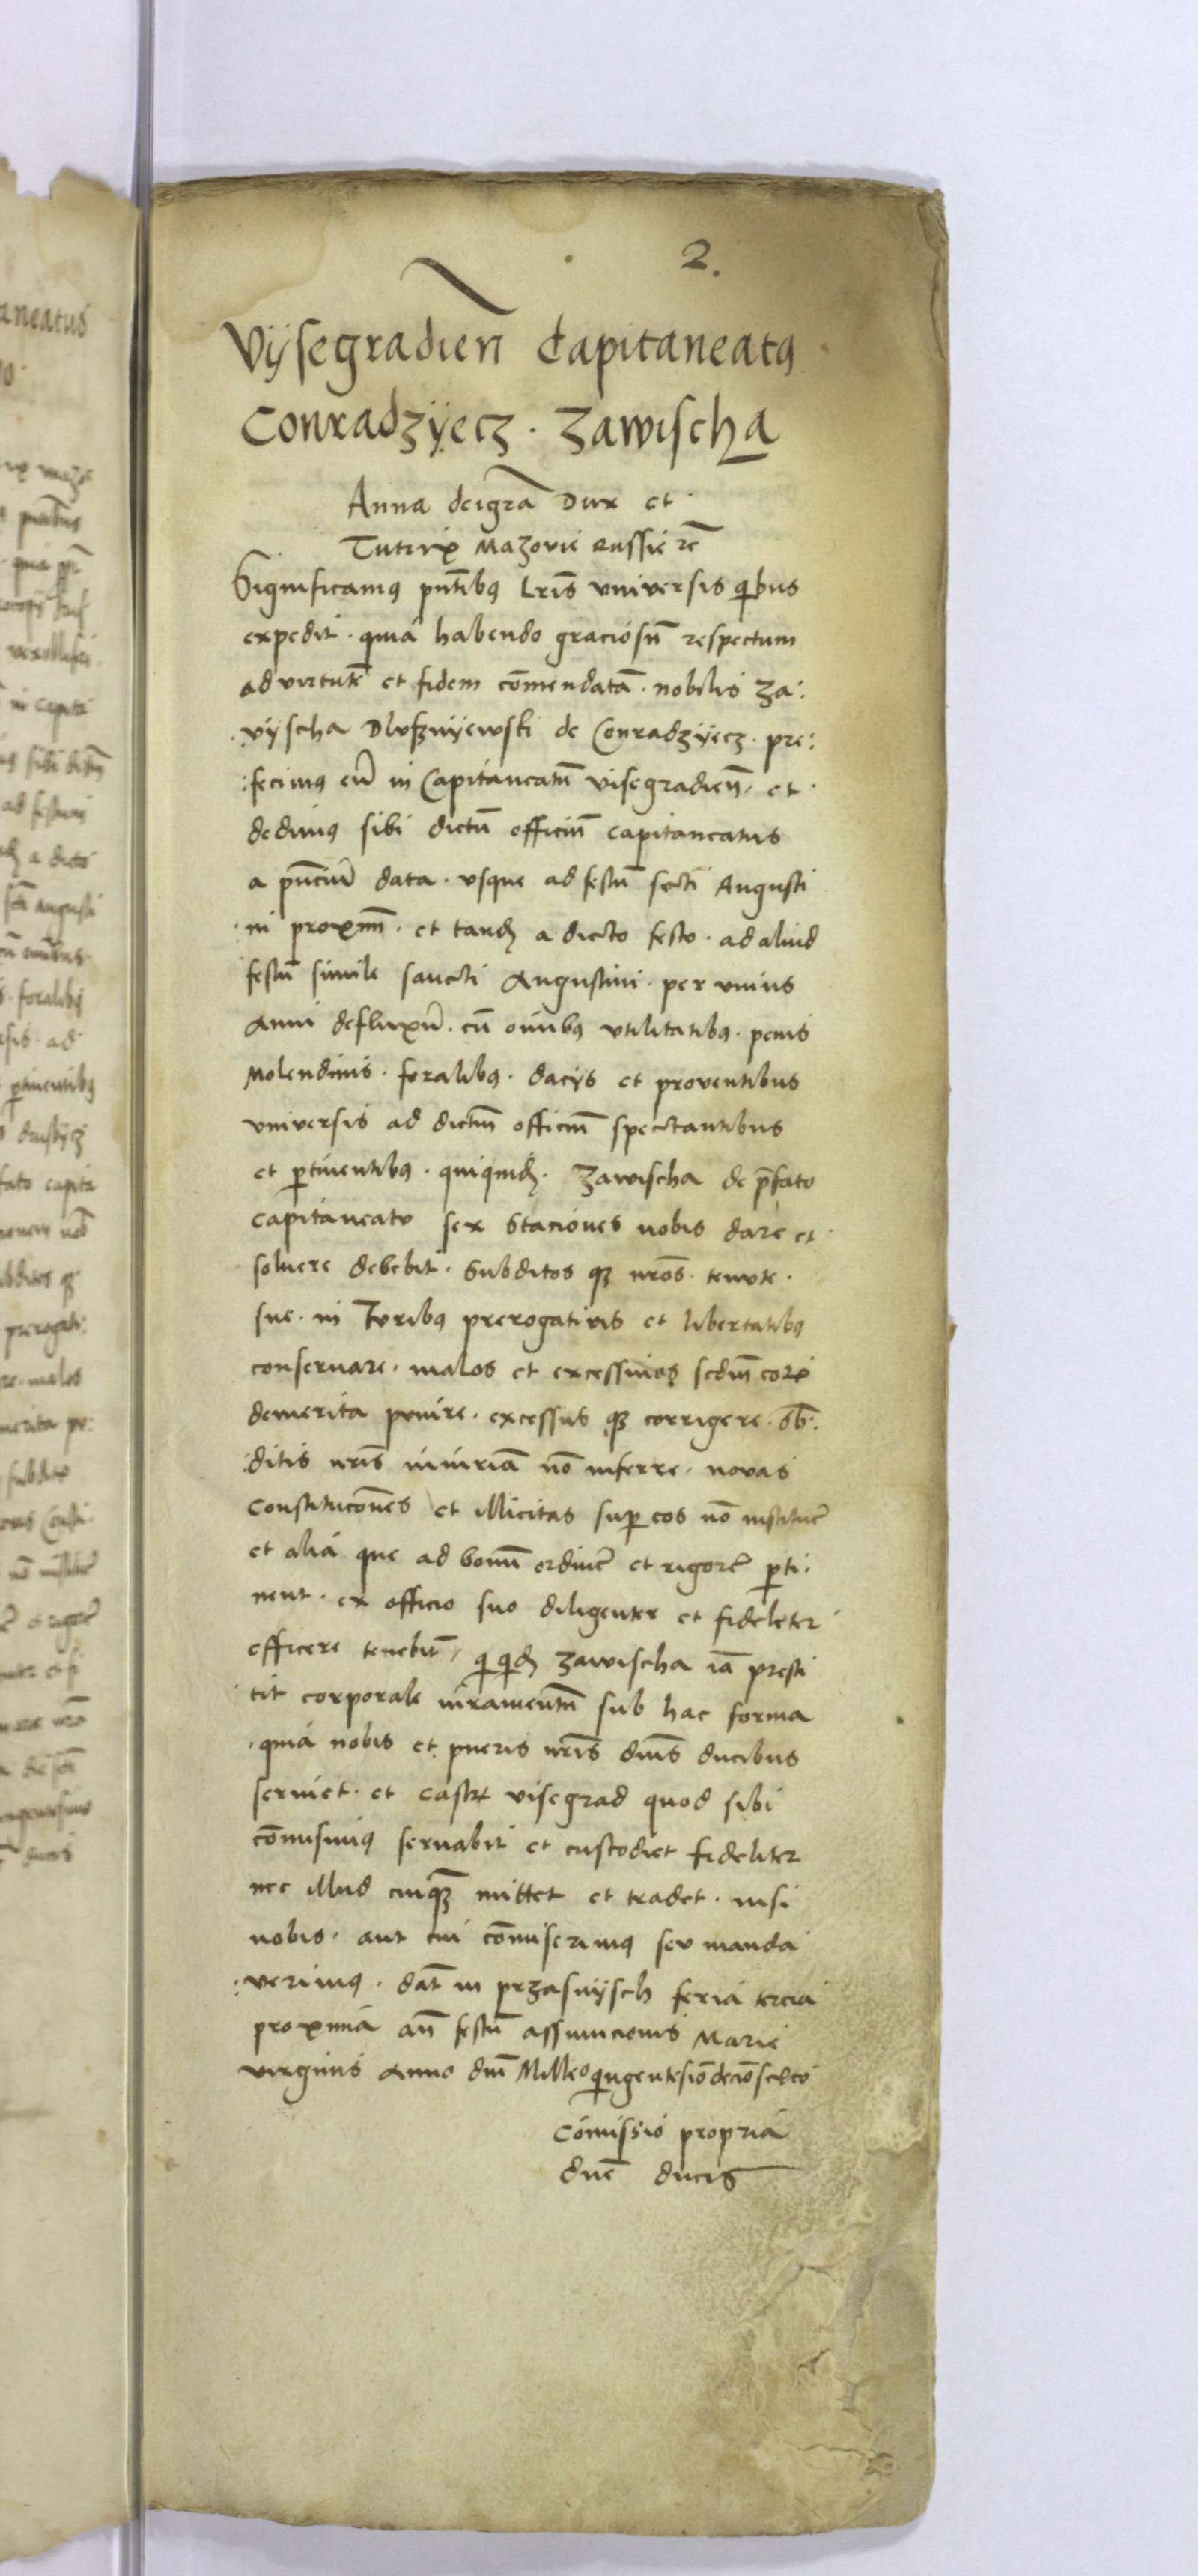 2.
Vÿsegradieñ Capitaneatꝯ
Conradzÿecz · Zawischa
Anna deigrã Dux et ·
Tutrix Mazovie Russie zc̃
Significamꝯ pñtibꝯ Lrĩs vniversis qibus
expedit · quia habendo graciosũ respectum
ad virtutẽ et fidem cõmendatã · nobilis Za:
vÿscha Dlvsznÿewski de Conradzÿecz · pre:
:fecimꝯ eũ in Capitaneatũ Visegradieñ · et ·
dedimꝯ sibi dictũ officiũ capitaneatus
a pñciũ data · vsque ad festũ sctĩ Augusti
ni proxim̃ · et tandẽ a dicto festo · ad aliud
festũ simile sancti Augustini · per vnius
Anni defluxũ · cũ oĩnibꝯ vtilitatibꝯ · penis
Molendinis · foralibꝯ · dacÿs et proventibus
vniversis ad dictũ officiũ spectantibus
et ptinentibꝯ · quiquidẽ · Zawischa de p̃fato
capitaneatv sex Staciones nobis dare et ·
solvere debebit · Subditos qꝫ nrõs · tenute ·
sue · in Iuribꝯ prerogativis et libertatibꝯ
conservare · malos et excessivos scdm̃ eorꝝ
demerita pvnire · excessus qꝫ corrigere · sb̃:
:ditis nrĩs iniuriã nõ inferre · novas
Constitucõnes et illicitas suꝑ eos nõ instituer̃
et alia que ad bonũ ordinẽ et rigorẽ ꝑti:
nent · ex officio suo diligenter et fideleter
efficere tenebit̃ / qi qidẽ Zawischa iã presti
tit corporale iuramentũ sub hac forma
· quia nobis et pueris nrĩs dñis ducibus
serviet · et castrꝫ visegrad quod sibi
cõmisimꝯ servabit et custodiet fideliter
nec illud cuiqꝫ mittet et tradet · nisi
nobis · aut cui cõmiserimꝯ sev manda
:verimꝯ · dat̃ in przasnÿsch feria tercia
proxima añ festũ assumcionis Marie
virginis Anno dnĩ Milleo qingentesiõ deciõ sexto
Cõmissio propria
dnẽ ducis